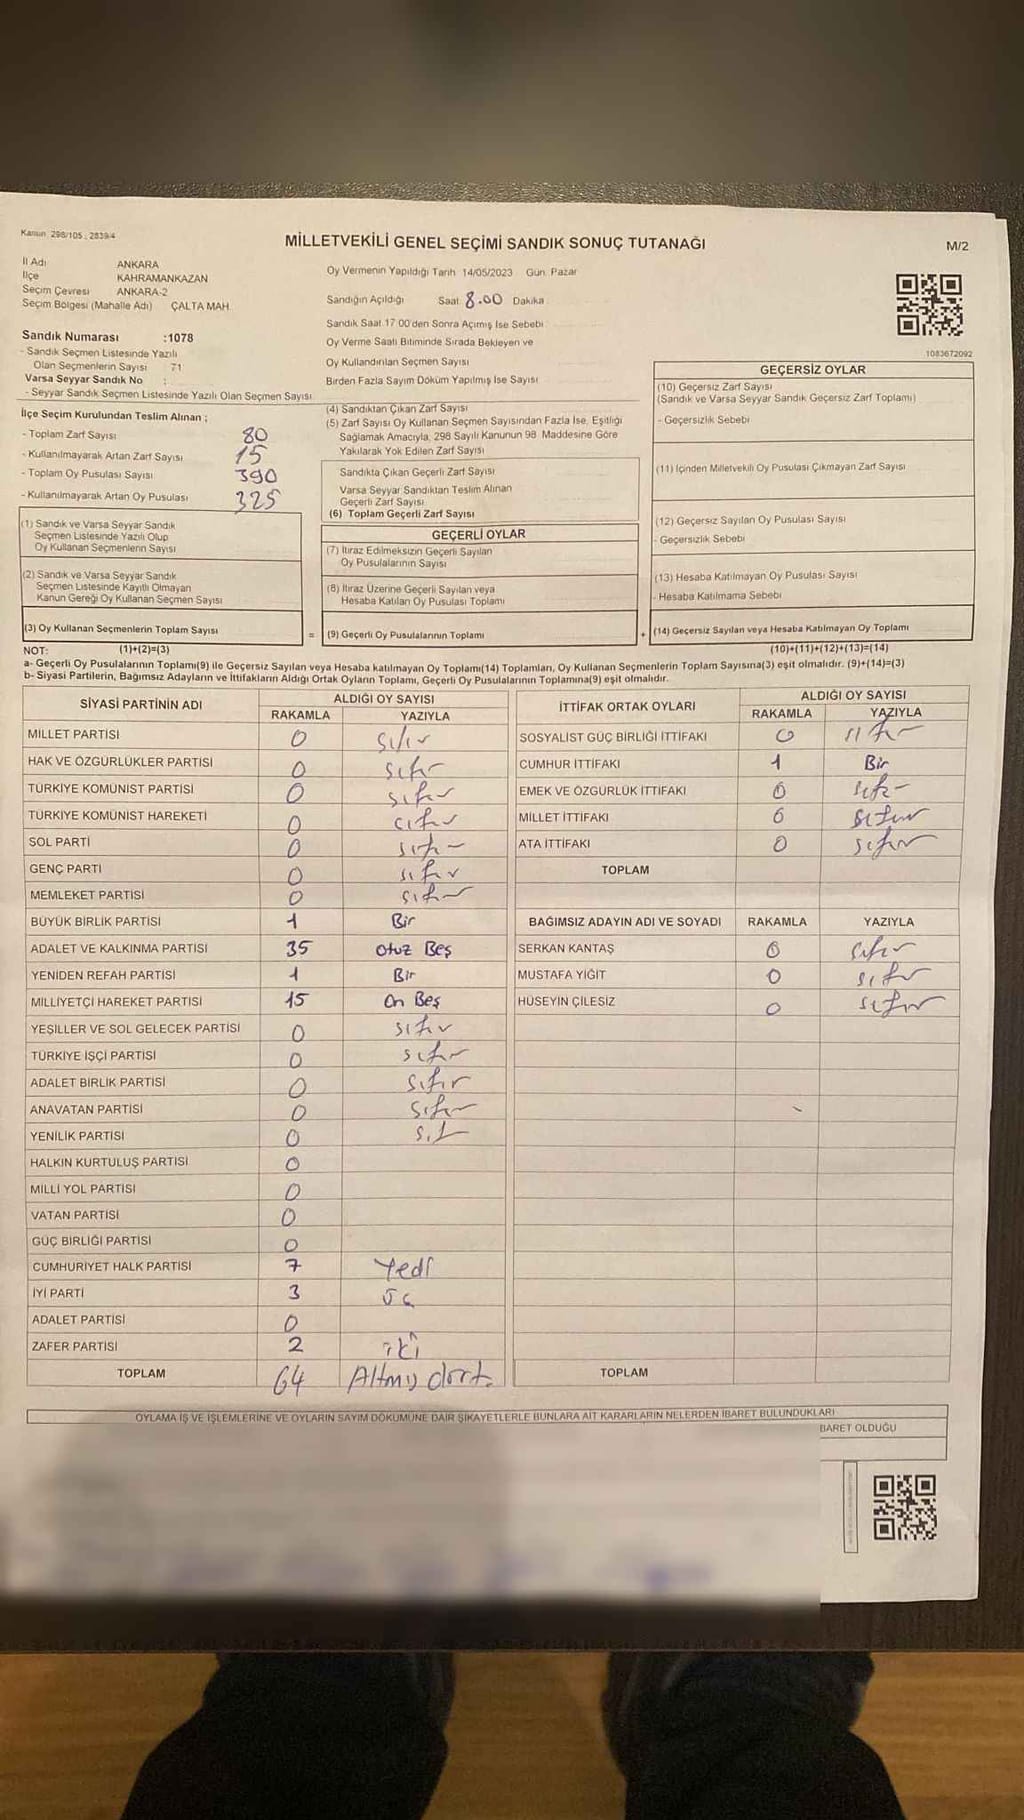 Kanun 298/105, 2839/4
MİLLETVEKİLİ GENEL SEÇİMİ SANDIK SONUÇ TUTANAĞI
M/2
İl Adı ANKARA
İlçe KAHRAMANKAZAN
Seçim Çevresi ANKARA-2
Seçim Bölgesi (Mahalle Adı) ÇALTA MAH.
Oy Vermenin Yapıldığı Tarih 14/05/2023 Gün Pazar
Sandığın Açıldığı Saat 8.00 Dakika
Sandık Saat 17 00'den Sonra Açımış İse Sebebi
Oy Verme Saati Bitiminde Sırada Bekleyen ve
Oy Kullandırılan Seçmen Sayısı
Birden Fazla Sayım Döküm Yapılmış İse Sayısı
1083672092
Sandık Numarası :1078
- Sandık Seçmen Listesinde Yazılı
Olan Seçmenlerin Sayısı 71
Varsa Seyyar Sandık No :
- Seyyar Sandık Seçmen Listesinde Yazılı Olan Seçmen Sayısı
İlçe Seçim Kurulundan Teslim Alınan ;
- Toplam Zarf Sayısı 80
- Kullanılmayarak Artan Zarf Sayısı 15
- Toplam Oy Pusulası Sayısı 390
- Kullanılmayarak Artan Oy Pusulası 325
(1) Sandık ve Varsa Seyyar Sandık
Seçmen Listesinde Yazılı Olup
Oy Kullanan Seçmenlerin Sayısı
(2) Sandık ve Varsa Seyyar Sandık
Seçmen Listesinde Kayıtlı Olmayan
Kanun Gereği Oy Kullanan Seçmen Sayısı
(3) Oy Kullanan Seçmenlerin Toplam Sayısı
(4) Sandıktan Çıkan Zarf Sayısı
(5) Zarf Sayısı Oy Kullanan Seçmen Sayısından Fazla İse, Eşitliği
Sağlamak Amacıyla, 298 Sayılı Kanunun 98. Maddesine Göre
Yakılarak Yok Edilen Zarf Sayısı
Sandıkta Çıkan Geçerli Zarf Sayısı
Varsa Seyyar Sandıktan Teslim Alınan
Geçerli Zarf Sayısı
(6) Toplam Geçerli Zarf Sayısı
GEÇERLİ OYLAR
(7) İtiraz Edilmeksizin Geçerli Sayılan
Oy Pusulalarının Sayısı
(8) İtiraz Üzerine Geçerli Sayılan veya
Hesaba Katılan Oy Pusulası Toplamı
= (9) Geçerli Oy Pusulalarının Toplamı
GEÇERSİZ OYLAR
(10) Geçersiz Zarf Sayısı
(Sandık ve Varsa Seyyar Sandık Geçersiz Zarf Toplamı)
- Geçersizlik Sebebi
(11) İçinden Milletvekili Oy Pusulası Çıkmayan Zarf Sayısı
(12) Geçersiz Sayılan Oy Pusulası Sayısı
- Geçersizlik Sebebi
(13) Hesaba Katılmayan Oy Pusulası Sayısı
- Hesaba Katılmama Sebebi
+ (14) Geçersiz Sayılan veya Hesaba Katılmayan Oy Toplamı
NOT: (1)+(2)=(3) (10)+(11)+(12)+(13)=(14)
a- Geçerli Oy Pusulalarının Toplamı(9) ile Geçersiz Sayılan veya Hesaba katılmayan Oy Toplamı(14) Toplamları, Oy Kullanan Seçmenlerin Toplam Sayısına(3) eşit olmalıdır. (9)+(14)=(3)
b- Siyasi Partilerin, Bağımsız Adayların ve İttifakların Aldığı Ortak Oyların Toplamı, Geçerli Oy Pusulalarının Toplamına(9) eşit olmalıdır.
SİYASİ PARTİNİN ADI ALDIĞI OY SAYISI
RAKAMLA YAZIYLA
MİLLET PARTİSİ 0 sıfır
HAK VE ÖZGÜRLÜKLER PARTİSİ 0 sıfır
TÜRKİYE KOMÜNİST PARTİSİ 0 sıfır
TÜRKİYE KOMÜNİST HAREKETİ 0 sıfır
SOL PARTİ 0 sıfır
GENÇ PARTİ 0 sıfır
MEMLEKET PARTİSİ 0 sıfır
BÜYÜK BİRLİK PARTİSİ 1 Bir
ADALET VE KALKINMA PARTİSİ 35 otuz Beş
YENİDEN REFAH PARTİSİ 1 Bir
MİLLİYETÇİ HAREKET PARTİSİ 15 On Beş
YEŞİLLER VE SOL GELECEK PARTİSİ 0 sıfır
TÜRKİYE İŞÇİ PARTİSİ 0 sıfır
ADALET BİRLİK PARTİSİ 0 sıfır
ANAVATAN PARTİSİ 0 sıfır
YENİLİK PARTİSİ 0
HALKIN KURTULUŞ PARTİSİ 0
MİLLİ YOL PARTİSİ 0
VATAN PARTİSİ 0
GÜÇ BİRLİĞİ PARTİSİ 0
CUMHURİYET HALK PARTİSİ 7 Yedi
İYİ PARTİ 3 üç
ADALET PARTİSİ 0
ZAFER PARTİSİ 2 iki
TOPLAM 64 Altmış dört.
İTTİFAK ORTAK OYLARI ALDIĞI OY SAYISI
RAKAMLA YAZIYLA
SOSYALİST GÜÇ BİRLİĞİ İTTİFAKI 0 sıfır
CUMHUR İTTİFAKI 1 Bir
EMEK VE ÖZGÜRLÜK İTTİFAKI 0 sıfır
MİLLET İTTİFAKI 0 sıfır
ATA İTTİFAKI 0 sıfır
TOPLAM
BAĞIMSIZ ADAYIN ADI VE SOYADI RAKAMLA YAZIYLA
SERKAN KANTAŞ 0 sıfır
MUSTAFA YİĞİT 0 sıfır
HÜSEYİN ÇİLESİZ 0 sıfır
TOPLAM
OYLAMA İŞ VE İŞLEMLERİNE VE OYLARIN SAYIM DÖKÜMÜNE DAİR ŞİKAYETLERLE BUNLARA AİT KARARLARIN NELERDEN İBARET BULUNDUKLARI
BARET OLDUĞU